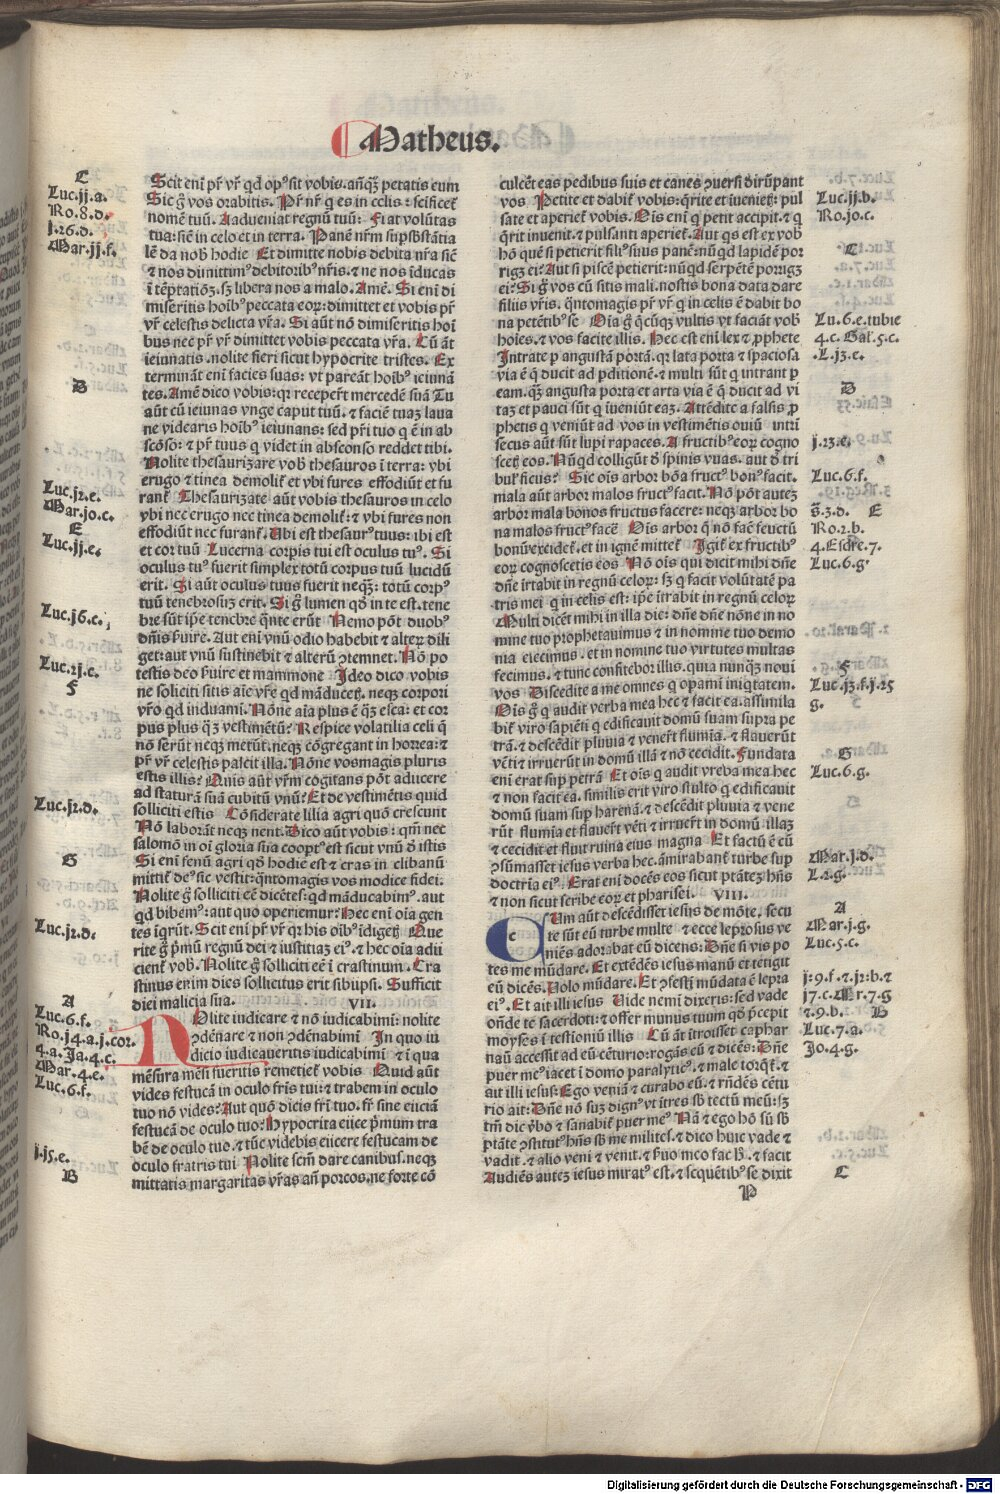 Matheus.
C
Luc.jj.a.
Ro.8.d.
j.26.d.
Mar.jj.f.
D
Luc.j2.e.
Mar.jo.c.
E
Luc.jj.e.
Luc.j6.c.
Luc.2j.e.
F
Luc.j2.d.
G
Luc.j2.d.
A
Luc.6.f.
Ro.j4.a.j.cor.
4.a. Ja.4.c.
Mar.4.e.
Luc.6.f.
j.j5.e.
B
Scit enī pr̄ vr̄ qd opꝰ sit vobis. anq̄ꝫ petatis eum
Sic ḡ vos orabitis. Pr̄ nr̄ q es in celis: scificetᷣ
nomē tuū. Adueniat regnū tuū: Fiat volūtas
tua: sic̄ in celo et in terra. Panē nr̄m supsb̄stātia
lē da nob̄ hodie Et dimitte nobis debita nr̄a sic̄
⁊ nos dimittimꝰ debitoribꝰ nr̄is. ⁊ ne nos īducas
ī tēptatiōꝫ. sꝫ libera nos a malo. Amē. Si enī di
miseritis hoībꝰ peccata eoꝝ: dimittet et vobis pr̄
vr̄ celestis delicta vr̄a. Si aūt nō dimiseritis hoī
bus nec pr̄ vr̄ dimittet vobis peccata vr̄a. Cū āt
ieiunatis. nolite fieri sicut hypocrite tristes. Ex
termināt enī facies suas: vt pareāt hoībꝰ ieiunā
tes. Amē dico vobis: qꝛ receper̄t mercedē suā Tu
aūt cū ieiunas vnge caput tuū. ⁊ faciē tuaꝫ laua
ne videaris hoībꝰ ieiunans: sed pr̄i tuo q ē in ab
scōso: ⁊ pr̄ tuus q videt in absconso reddet tibi.
Nolite thesaurizare vob̄ thesauros ī terra: vbi
erugo ⁊ tinea demolitᷣ et vbi fures effodiūt et fu
rantᷣ Thesaurizate aūt vobis thesauros in celo
vbi nec erugo nec tinea demolitᷣ: ⁊ vbi fures non
effodiūt nec furantᷣ. Ubi est thesaurꝰ tuus: ibi est
et cor tuū Lucerna corpis tui est oculus tuꝰ. Si
oculus tuꝰ fuerit simplex totū corpus tuū lucidū
erit. Si aūt oculus tuus fuerit neqꝫ: totū corpꝰ
tuū tenebrosuꝫ erit. Si ḡ lumen qd̄ in te est. tene
bre sūt ip̄e tenebr̄ q̄nte erūt Nemo pōt duobꝰ
dn̄is s̄uire. Aut enī vnū odio habebit ⁊ alteꝝ dili
get: aut vnū sustinebit ⁊ alterū ꝯtemnet. Nō po
testis deo s̄uire et mammone Ideo dico vobis
ne soliciti sitis aīe vr̄e qd māducetꝭ. neqꝫ corpori
vr̄o qd induami. Nōne aīa plus ē qꝫ esca: et cor
pus plus qꝫ vestimētū? Respice volatilia celi q̄
nō serūt neqꝫ metūt. neqꝫ cōgregant in horrea: ⁊
pr̄ vr̄ celestis pascit illa. Nōne vos magis pluris
estis illis? Quis aūt vr̄m cogitans pōt adiicere
ad staturā suā cubitū vnū? Et de vestimētis quid
solliciti estis Cōsiderate lilia agri quō crescunt
Nō laborāt neqꝫ nent. Dico aūt vobis: qm̄ nec
salomō in oī gloria sua cooptꝰ est sicut vnū d̄ istis
Si enī fenū agri qd̄ hodie est ⁊ cras in clibanū
mittitᷣ deꝰ sic vestit: q̄ntomagis vos modice fidei.
Nolite ḡ solliciti eē dicētes: qd māducabimꝰ. aut
qd bibemꝰ: aut quo operiemur: Hec enī oīa gen
tes īqrūt. Scit enī pr̄ vr̄ qꝛ his oībꝰ īdigetꝭ Que
rite ḡ p̄mū regnū dei ⁊ iustitiaꝫ eiꝰ. ⁊ hec oīa adii
cientᷣ vob̄. Nolite ḡ solliciti eē ī crastinum. Cra
stinus enim dies sollicitus erit sibiipsi. Sufficit
diei malicia sua. VII.
Nolite iudicare ⁊ nō iudicabimī: nolite
ꝯdēnare ⁊ non ꝯdēnabimī In quo iu
dicio iudicaueritis iudicabimī ⁊ ī qua
mēsura mēsi fueritis remetietᷣ vobis Quid aūt
vides festucā in oculo fr̄is tui: ⁊ trabem in oculo
tuo nō vides: Aut quō dicis fr̄i tuo. fr̄ sine eiiciā
festucā de oculo tuo: Hypocrita eiice p̄mum tra
bē de oculo tuo. ⁊ tūc videbis eiicere festucam de
oculo fratris tui Nolite scm̄ dare canibus. neqꝫ
mittatis margaritas vr̄as an̄ porcos. ne forte cō
culcēt eas pedibus suis et canes ꝯuersi dirūpant
vos Petite et dabitᷣ vobis: qrite et īuenietꝭ: pul
sate et aperietᷣ vobis. Ois enī q petit accipit. ⁊ q
q̄rit inuenit. ⁊ pulsanti aperietᷣ. Aut qs est ex vob̄
hō quē si petierit filiꝰ suus panē: nūqd lapidē por
rigꝫ ei? Aut si piscē petierit: nūqd serpētē porrigꝫ
ei? Si ḡ vos cū sitis mali. nostis bona data dare
filiis vr̄is. q̄ntomagis pr̄ vr̄ q in celis ē dabit bo
na petētibꝰ se Oīa ḡ q̄cūqꝫ vultis vt faciāt vob̄
hoīes. ⁊ vos facite illis. Hec est enī lex ⁊ ꝓphete
Intrate p angustā portā. qꝛ lata porta ⁊ spaciosa
via ē q̄ ducit ad pditionē. ⁊ multi sūt q intrant p
eam. qꝫ angusta porta et arta via ē q̄ ducit ad vi
taꝫ et pauci sūt q īueniūt eaꝫ. Attēdite a falsis ꝓ
phetis q veniūt ad vos in vestimētis ouiū intrī
secus aūt sūt lupi rapaces. A fructibꝰ eoꝝ cogno
scetꝭ eos. Nūqd colligūt d̄ spinis vuas. aut d̄ tri
bulꝭ ficus? Sic oīs arbor bōa fructꝰ bonꝰ facit.
mala aūt arbor malos fructꝰ facit. Nō pōt auteꝫ
arbor mala bonos fructus facere: neqꝫ arbor bo
na malos fructꝰ facē Ois arbor q̄ nō faē fructū
bonū excidetᷣ. et in ignē mittetᷣ Igitᷣ ex fructibꝰ
eoꝝ cognoscetis eos Nō oīs qui dicit mihi dn̄e
dn̄e īrabit in regnū celoꝝ: sꝫ q facit volūtatē pa
tris mei q in celis est: ip̄e ītrabit in regnū celoꝝ
Multi dicēt mihi in illa die: dn̄e dn̄e nōne in no
mine tuo prophetauimus ⁊ in nomine tuo demo
nia eiecimus. et in nomine tuo virtutes multas
fecimus. ⁊ tunc confitebor illis. quia nunqꝫ noui
vos Discedite a me omnes q opamī iniqtatem.
Ois ḡ q audit verba mea hec ⁊ facit ea. assimila
bitᷣ viro sapiēti q edificauit domū suam supra pe
trā. ⁊ descēdit pluuia ⁊ vener̄t flumia. ⁊ flauerūt
vēti ⁊ irruerūt in domū illā ⁊ nō cecidit. Fundata
enī erat sup petrā Et oīs q audit verba mea hec
⁊ non facit ea. similis erit viro stulto q edificauit
domū suam sup harenā. ⁊ descēdit pluuia ⁊ vene
rūt flumia et flauer̄t vēti ⁊ irruer̄t in domū illaꝫ
⁊ cecidit et fuit ruina eius magna Et factū ē cū
ꝯsūmasset iesus verba hec. āmirabantᷣ turbe sup
doctrīa eiꝰ. Erat enī docēs eos sicut ptātez hn̄s
⁊ non sicut scribe eoꝝ et pharisei. VIII.
Cum aūt descēdisset iesus de mōte. secu
te sūt eū turbe multe ⁊ ecce leprosus ve
niēs adorabat eū dicens: Dn̄e si vis po
tes me mūdare. Et extēdēs iesus manū et tetigit
eū dicēs. Volo mūdare. Et ꝯfestī mūdata ē lepra
eiꝰ. Et ait illi iesus Vide nemī dixeris: sed vade
on̄de te sacerdoti: ⁊ offer munus tuum qd̄ p̄cepit
moyses ī testioniū illis Cū āt ītroisset caphar
naū accessit ad eū cēturio: rogās eū ⁊ dicēs: Dn̄e
puer meꝰ iacet ī domo paralyticꝰ. ⁊ male torqtᷣ. ⁊
ait illi iesus: Ego veniā ⁊ curabo eū. ⁊ rn̄dēs cētu
rio ait: Dn̄e nō suꝫ dignꝰ vt ītres sb̄ tectū meū: sꝫ
tm̄ dic v̄bo ⁊ sanabitᷣ puer meꝰ Nā ⁊ ego hō sū sb̄
ptāte ꝯstitutꝰ hn̄s sb̄ me militeſ. ⁊ dico huic vade ⁊
vadit. ⁊ alio veni ⁊ venit. ⁊ s̄uo meo fac h̄. ⁊ facit
Audiēs auteꝫ iesus miratꝰ est. ⁊ seq̄uētibꝰ se dixit
P
Luc.jj.b.
Ro.jo.c.
C
Lu.6.e.tubie
4.c. Gal.5.c.
.L.j3.e.
D
j.23.e.
Luc.6.f.
g.3.d. E
Ro.2.b.
4.Esdre.7.
Luc.6.g.
F
Luc.j3.f.j.25
g.
G
Luc.6.g.
Mar.j.d.
L.2.g.
A
Mar.j.g.
Luc.5.c.
j:9.f.⁊.j2:b.⁊
j7.c.Mr.7.g
⁊.9.b. B
Luc.7.a.
Jo.4.g.
C
Digitalisierung gefördert durch die Deutsche Forschungsgemeinschaft - DFG